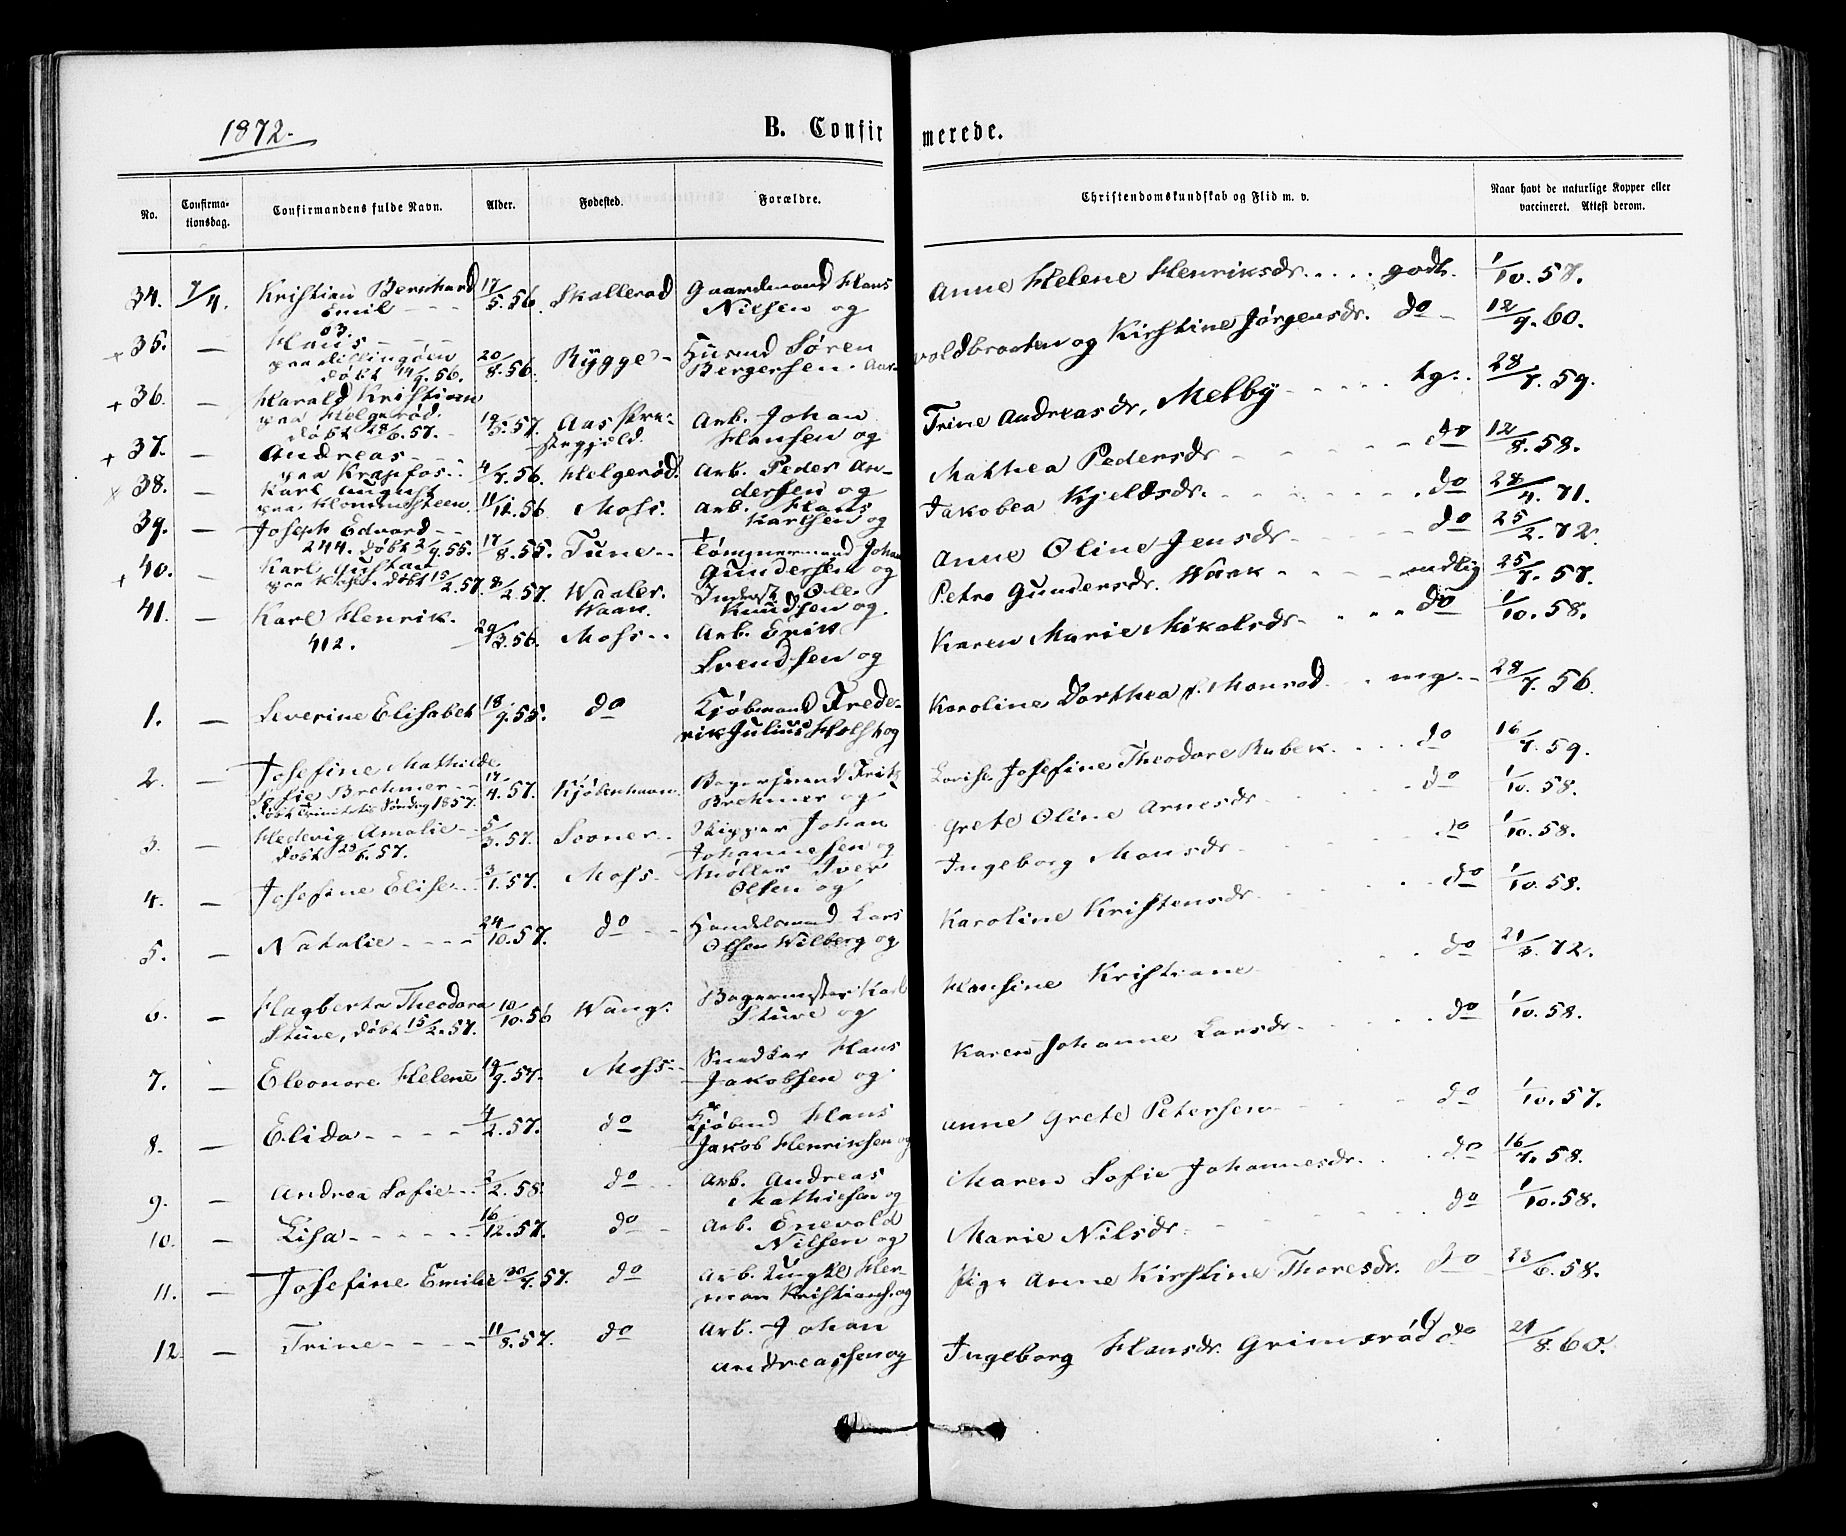 1872.
B. Confirmerede.
No.
Confirma-
tionsdag.
Confirmandens fulde Navn.
Alder.
Fødested.
Forældre.
Christendomskundskab og Flid m. v.
Naar havt de naturlige Kopper eller
vaccineret. Attest derom.
34. 7/4. Kristian Bernhard 17/5.56. Skallerød Gaardmand Hans Anne Helene Henriksdr. .... godt. 1/10.57.
Emil - - - Nilsen og
+ 35. — Hans 20/8.56. Rygge - Husmd Søren voldbraaten og Kirstine Jørgensdr. do - 12/9.60.
døbt 14/9.56. Bergersen
+ 36. — Harald Kristian 19/5.57. Aas Præ- Arb. Johan Trine Andreasdr. Melby - - - tg. 28/7.59.
paa Helgerød. stegjeld. Hansen og
døbt 28/6.57.
+ 37. — Andreas - - - 4/7.56. Helgerød. Arb. Peder An- Mathea Pedersdr - - - do 12/8.58.
paa Krapfos dersen og
x 38. — Karl August 11/12.56 Moss. Arb. Hans Jakobea Kjeldsdr. - - - do 28/4.71.
Karlsen og
39. — Joseph Edvard - 17/8.55. Tune - Tømmermand Johan Anne Oline Jensdr - - - do 25/2.72.
244. døbt 2/9.55. Gundersen og
+ 40. — Karl Gustav 8/2.57. Waaler. Inderst Ole Petra Gundersdr. Wark - - - mdlig 25/7.57.
døbt 15/2.57. Knudsen og
41. — Karl Henrik. 29/12.56. Moss - Arb. Erik Karen Marie Mikalsdr - - do 1/10.58.
412. Svendsen og
1. — Severine Elisabet 18/9.55. do Kjøbmand Frede- Karoline Dorthea f. Monrad - - mg. - 28/7.56.
rik Julius Holst og
2. — Josefine Mathilde 17/4.57. Kjøbenhavn Bagersvend Fritz Lovise Josefine Theodore Rubek - - - do 16/7.59.
Sofie Brehmer - Brehmer og
døbt Trinitatis Søndag 1857.
3. — Hedevig Amalie - 5/3.57. Sooner - Skipper Johan Grete Oline Arnesdr - - - do 1/10.58.
døbt 23/6.57. Johannesen og
4. — Josefine Elise - 3/1.57. Moss - Møller Iver Ingeborg Monsdr - - - do 1/10.58.
Olsen og
5. — Natalie - - - 24/10.57. do - Handelsmand Lars Karoline Kristensdr - - - do 1/10.58.
Olsen Wilberg og
6. — Hagberta Theodora 10/10.56 Wang. Bagermester Karl Hansine Kristiane - - - do 21/3.72.
Stuve, døbt 15/2.57. Stuve og
7. — Eleonore Helene 19/9.57. Moss - Snedker Hans Karen Johanne Larsdr - - - do 1/10.58.
Jakobsen og
8. — Elida - - - 4/2.57. do Kjøbmd Hans Anne Grete Petersen - - - do 1/10.57.
Jakob Henriksen og
9. — Andrea Sofie - 3/2.58. do Arb. Andreas Maren Sofie Johannesdr. - - do 16/7.58.
Mathiesen og
10. — Lisa - - - 16/12.57. do Arb. Enevold Marie Nilsdr - - - do 1/10.58.
Nilsen og
11. — Josefine Emilie 20/7.57. do Arb. Ungkl Her- Pige Anne Kirstine Thoresdr. do 23/6.58.
man Kristians. og
12 — Trine - - - 11/8.57. do Arb. Johan Ingeborg Hansdr. Grimsrød do 21/8.60.
Andreassen og